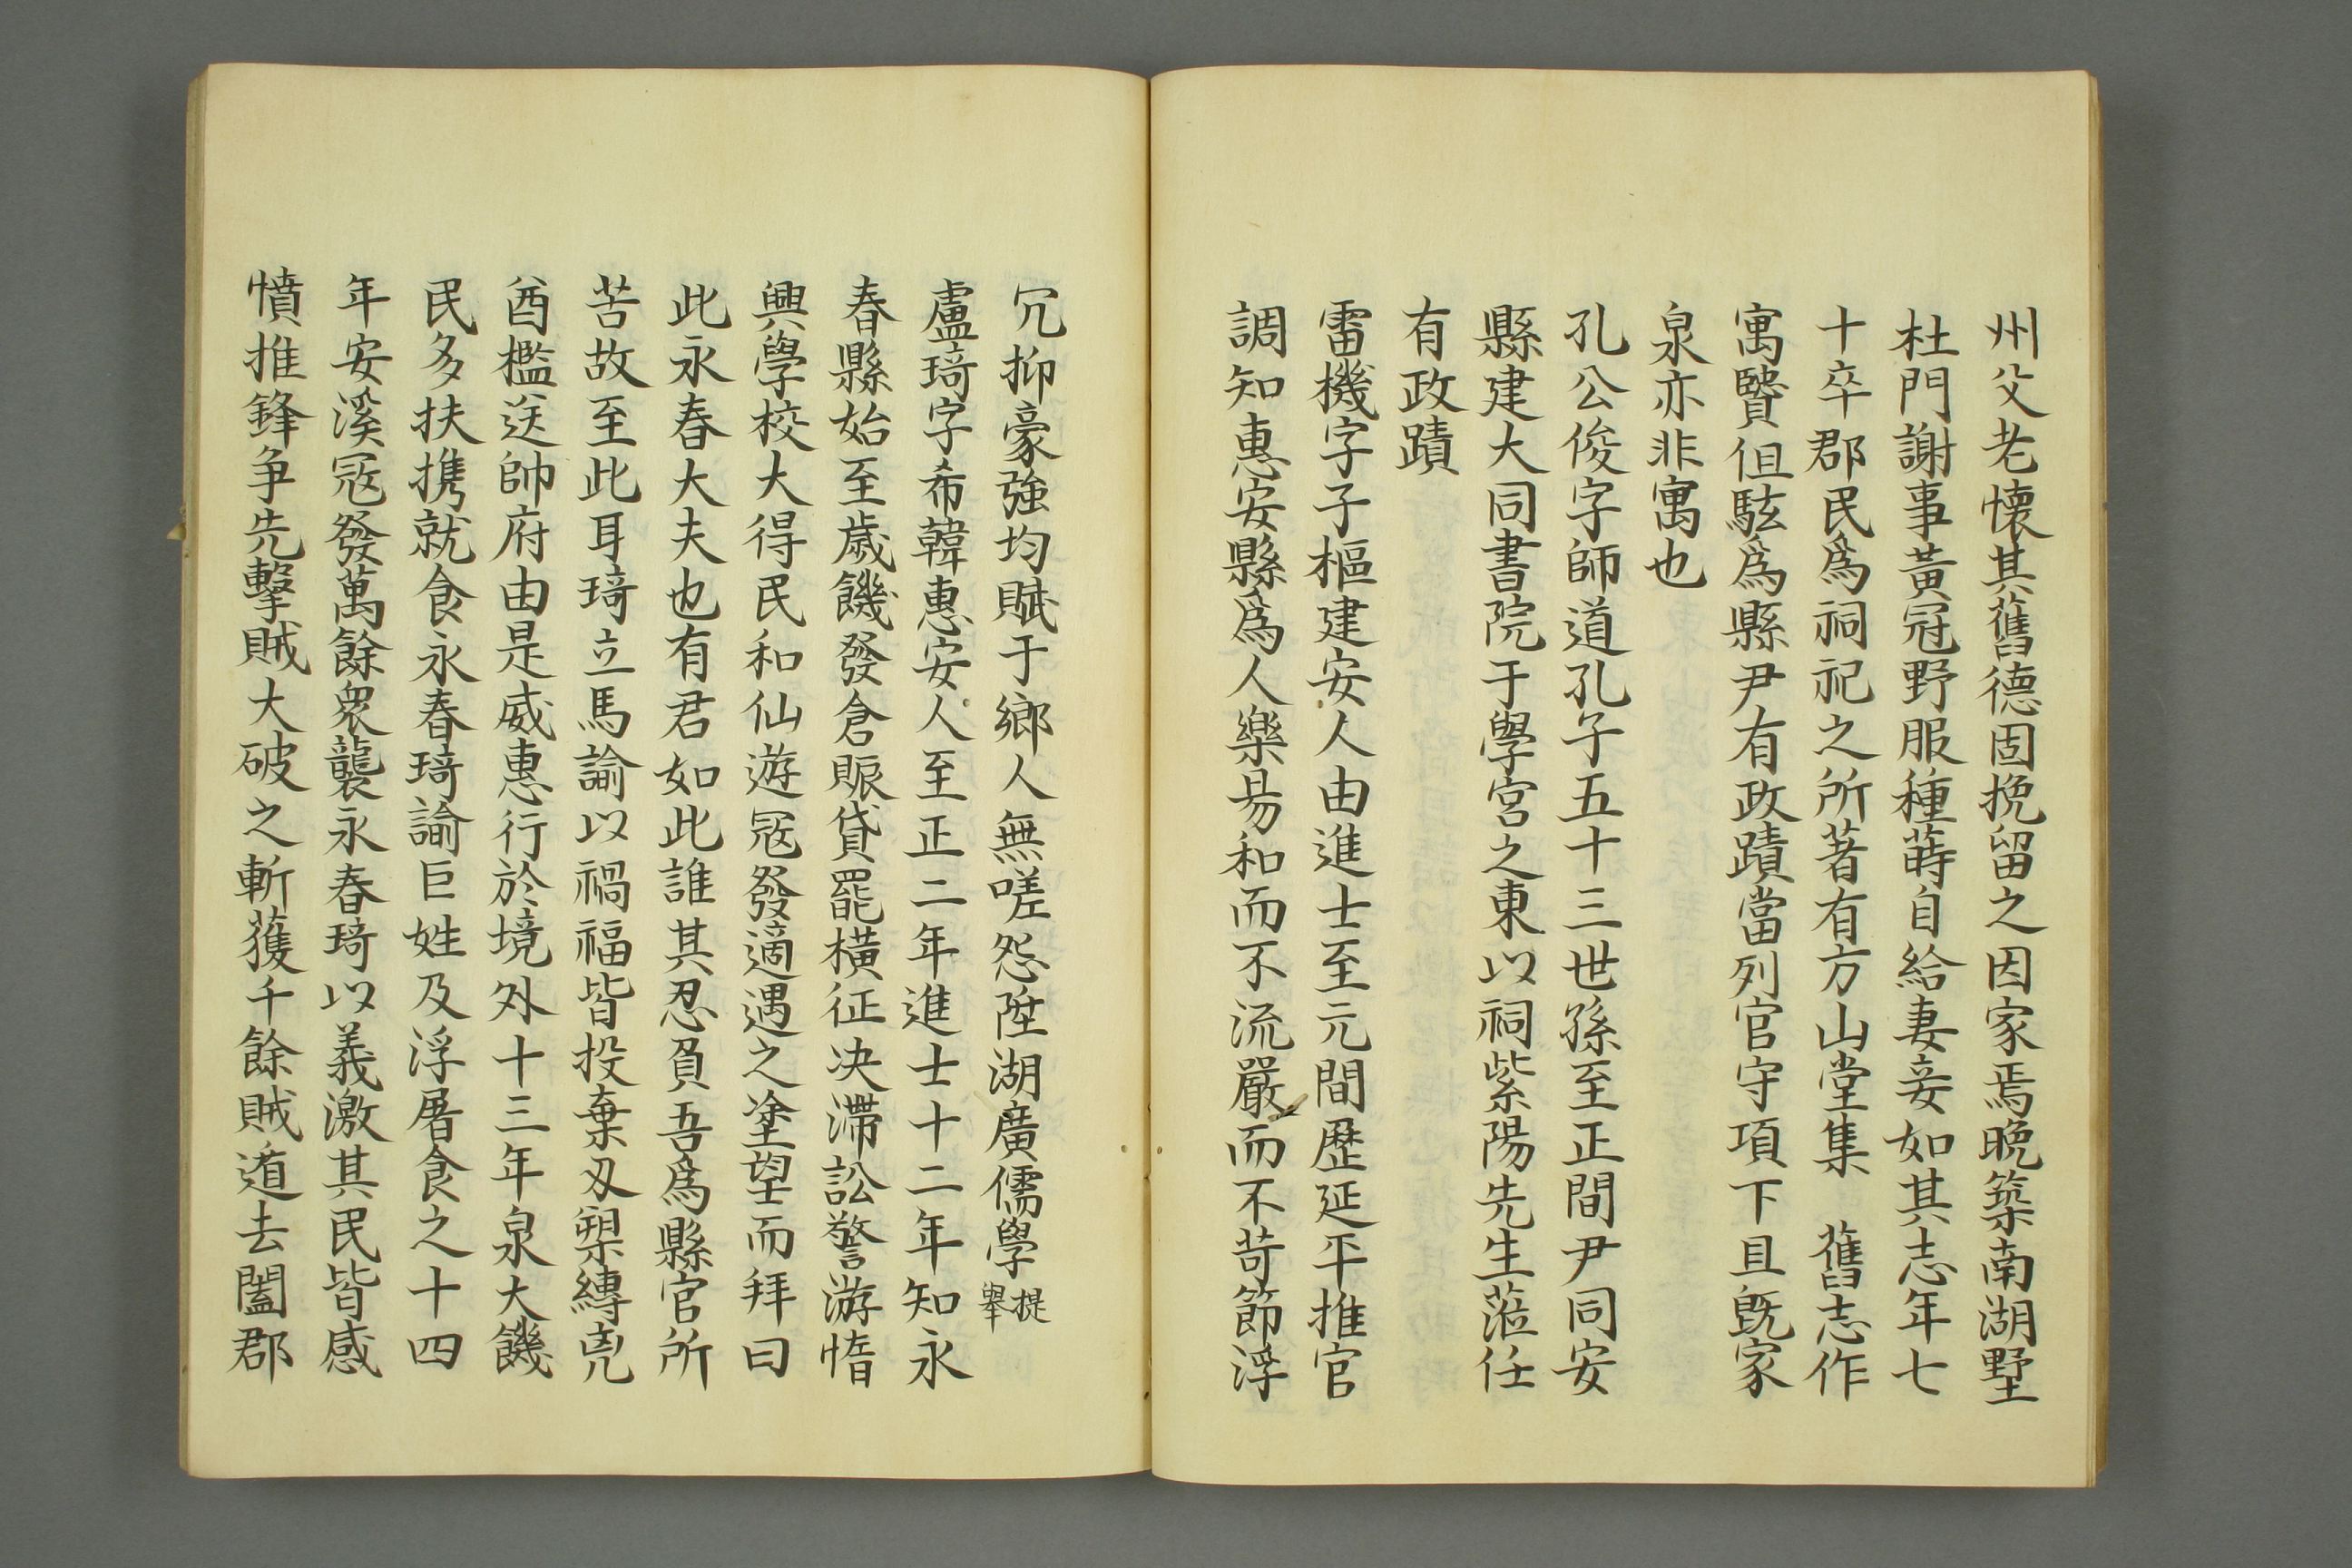 州父老懷其舊德固挽留之因家焉晚築南湖墅
杜門謝事黃冠野服種蒔自給妻妾如其志年七
十卒郡民爲祠祀之所著有方山堂集　舊志作
寓賢但駭爲縣尹有政蹟當列官守項下且既家
泉亦非寓也
孔公俊字師道孔子五十三世孫至正間尹同安
縣建大同書院于學宮之東以祠紫陽先生蒞任
有政蹟
雷機字子樞建安人由進士至元間歷延平推官
調知惠安縣爲人樂易和而不流嚴而不苛節浮
冗抑豪強均賦于鄉人無嗟怨陞湖廣儒學提舉
盧琦字希韓惠安人至正二年進士十二年知永
春縣始至歲饑發倉賑貸罷橫征決滯訟警游惰
興學校大得民和仙遊冦發適遇之塗望而拜曰
此永春大夫也有君如此誰其忍負吾爲縣官所
苦故至此耳琦立馬諭以禍福皆投棄刄槊縛兇
酋檻送帥府由是威惠行於境外十三年泉大饑
民多扶携就食永春琦諭巨姓及浮屠食之十四
年安溪冦發萬餘衆襲永春琦以義激其民皆感
憤推鋒争先擊賊大破之斬獲千餘賊遁去闔郡